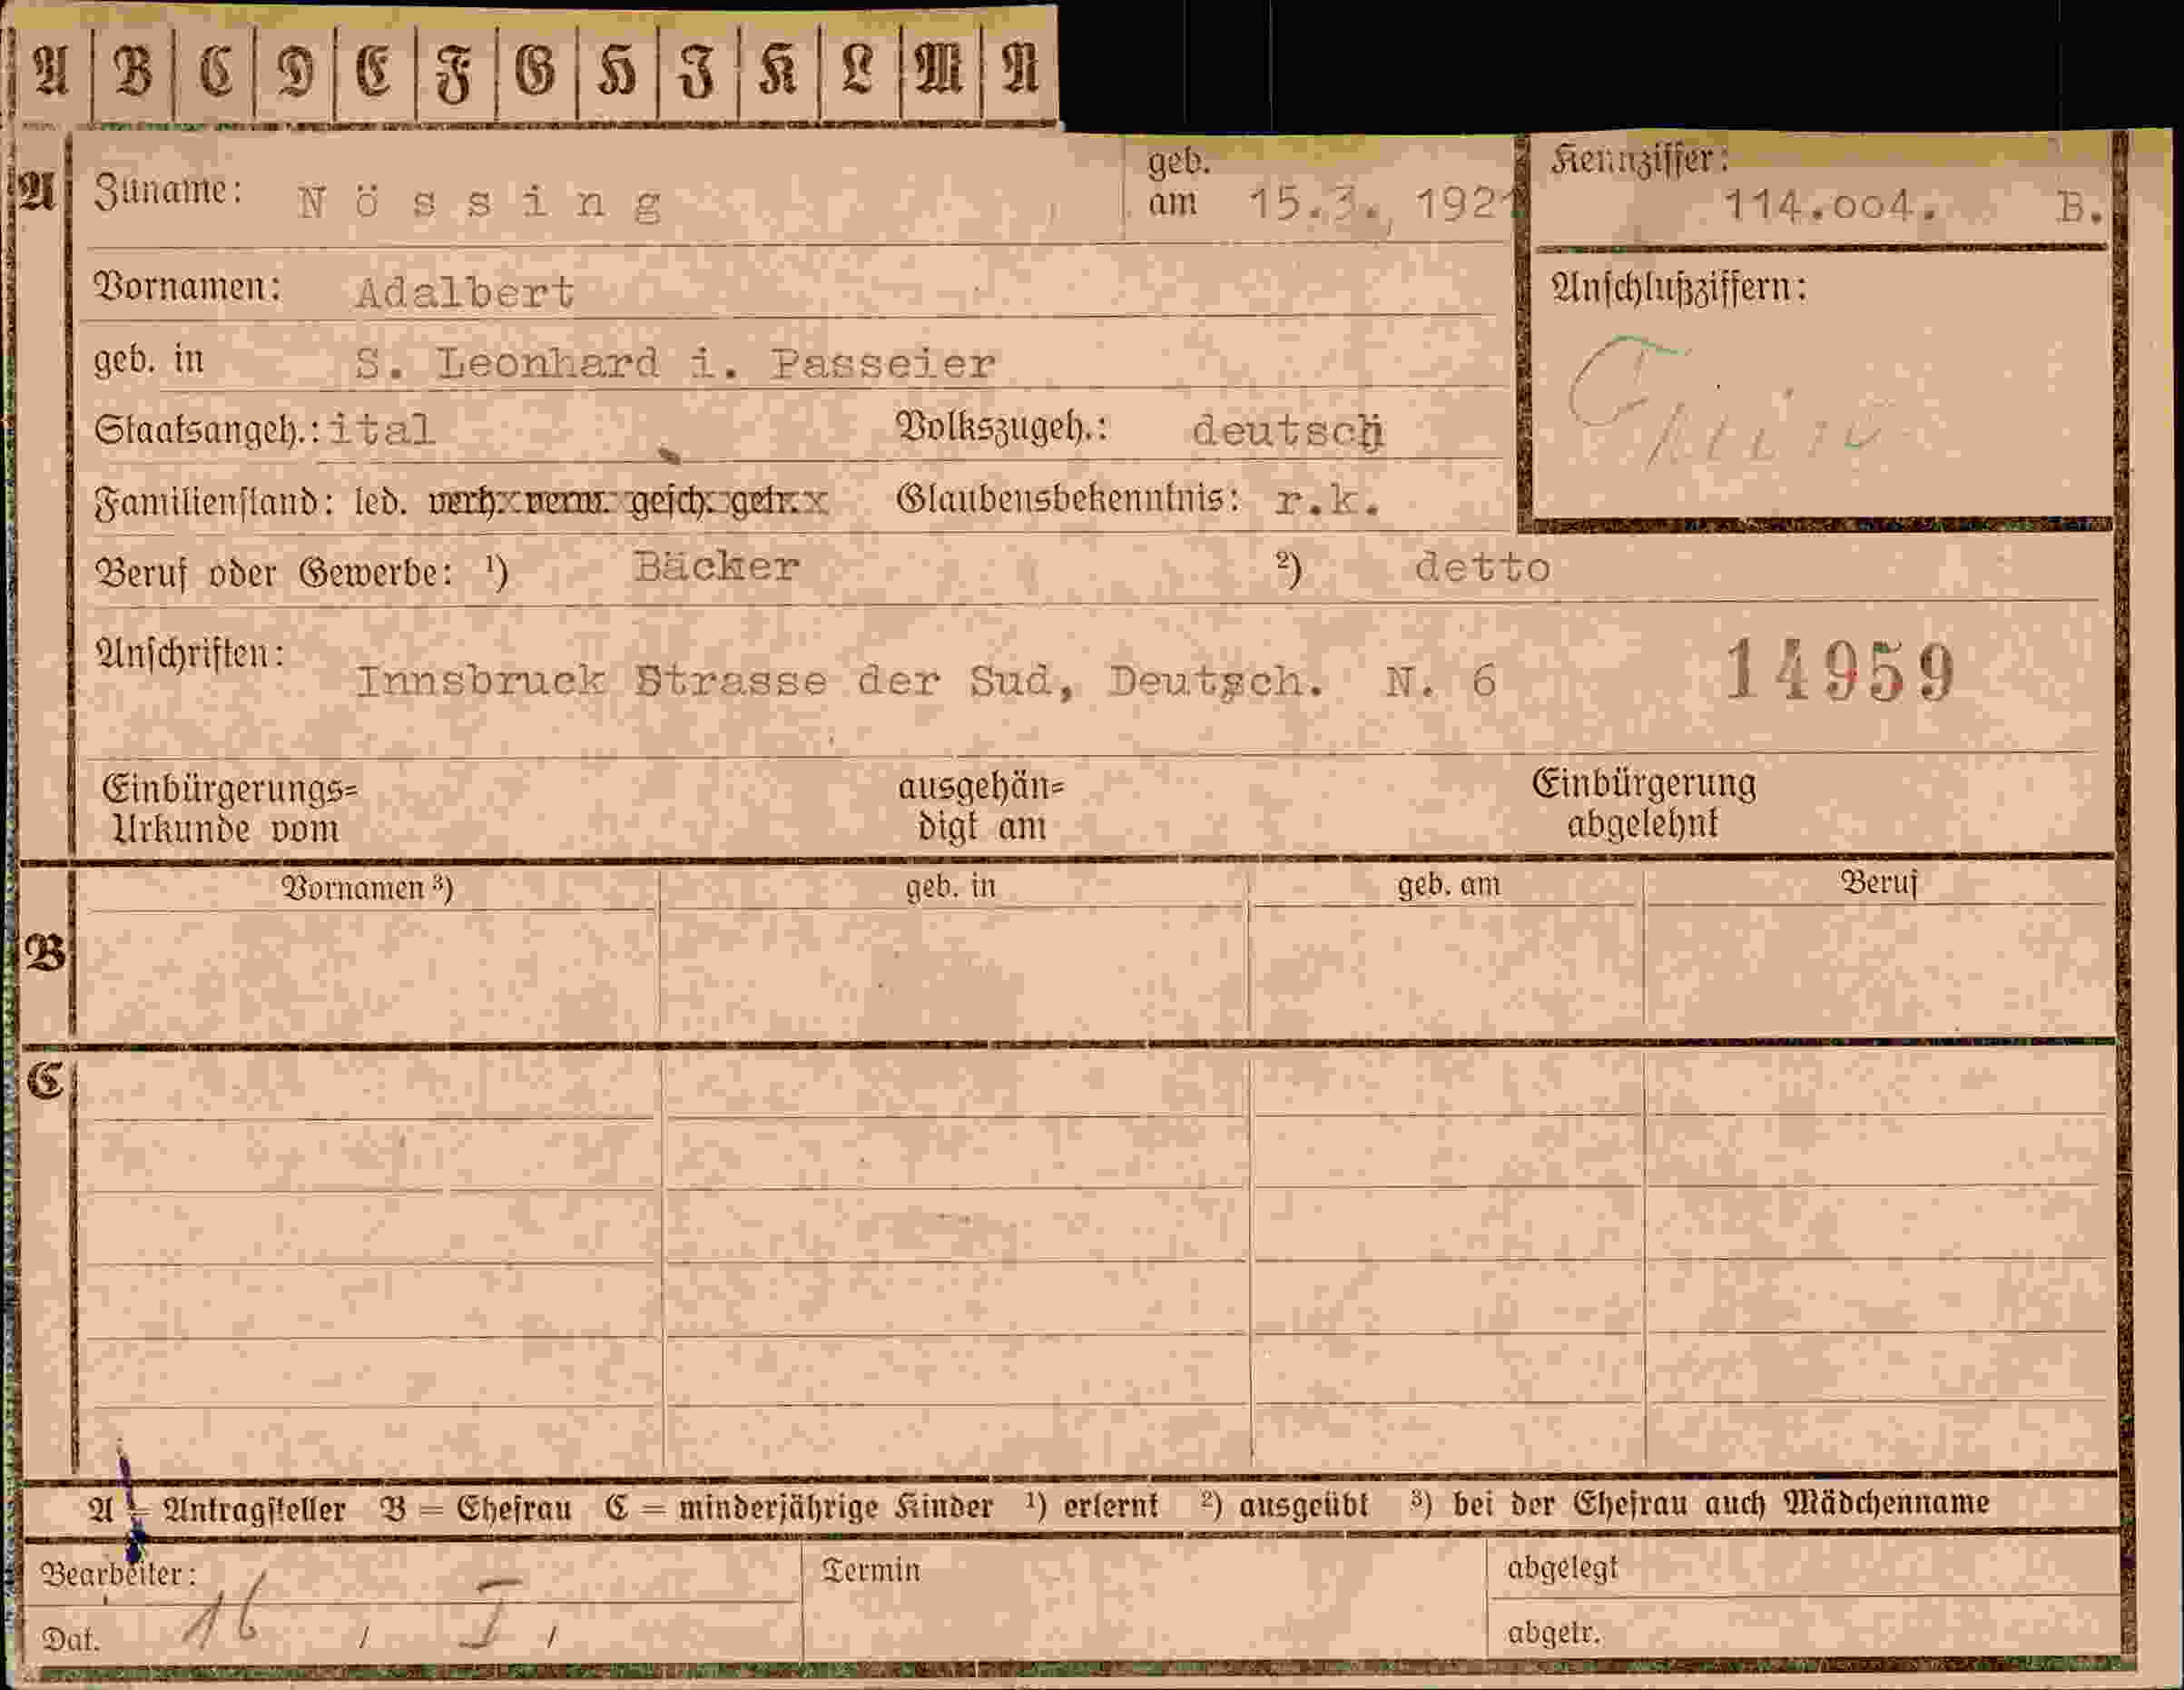 A B C D E F G H J K L M N
A Zuname: Nössing geb. am 15.3., 1921 Kennziffer: 114.oo4. B.
Vornamen: Adalbert Anschlußziffern:
geb. in S. Leonhard i. Passeier
Staatsangeh.: ital Volkszugeh.: deutsch
Familienstand: led. verh. verw. gesch. getr. Glaubensbekenntnis: r.k.
Beruf oder Gewerbe: ¹) Bäcker ²) detto
Anschriften: Innsbruck Strasse der Sud, Deutsch. N. 6 14959
Einbürgerungs= ausgehän= Einbürgerung
Urkunde vom digt am abgelehnt
Vornamen ³) geb. in geb. am Beruf
B
C
A = Antragsteller B = Ehefrau C = minderjährige Kinder ¹) erlernt ²) ausgeübt ³) bei der Ehefrau auch Mädchenname
Bearbeiter: Termin abgelegt
Dat. 16 / I / abgetr.